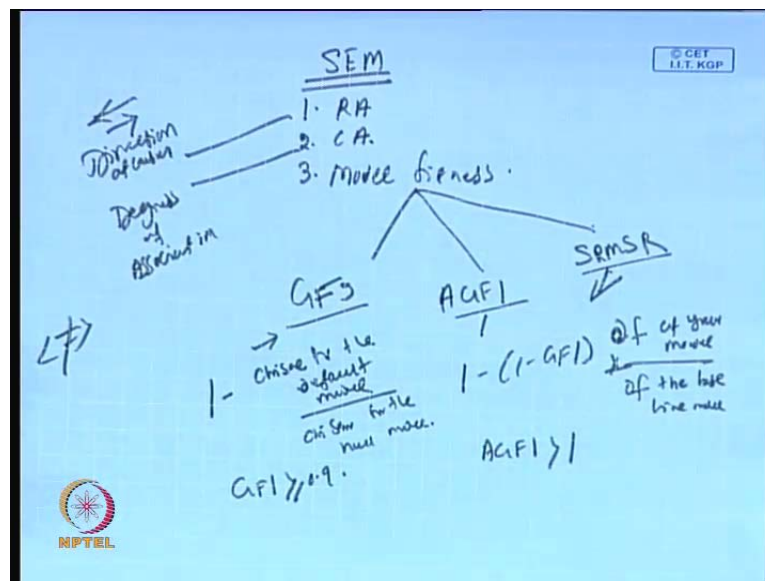 SEM
© CET
I.I.T. KGP
1. RA
2. CA.
3. Model fitness.
Direction
of
Degrees
of
Association
GFI
AGFI
SRMSR
1 - chisqe for the
default
model
chisqe for the
null model.
GFI ≥ 0.9.
1 - (1 - GFI) * Df of your
model
Df of the base
line model
AGFI > 1
NPTEL